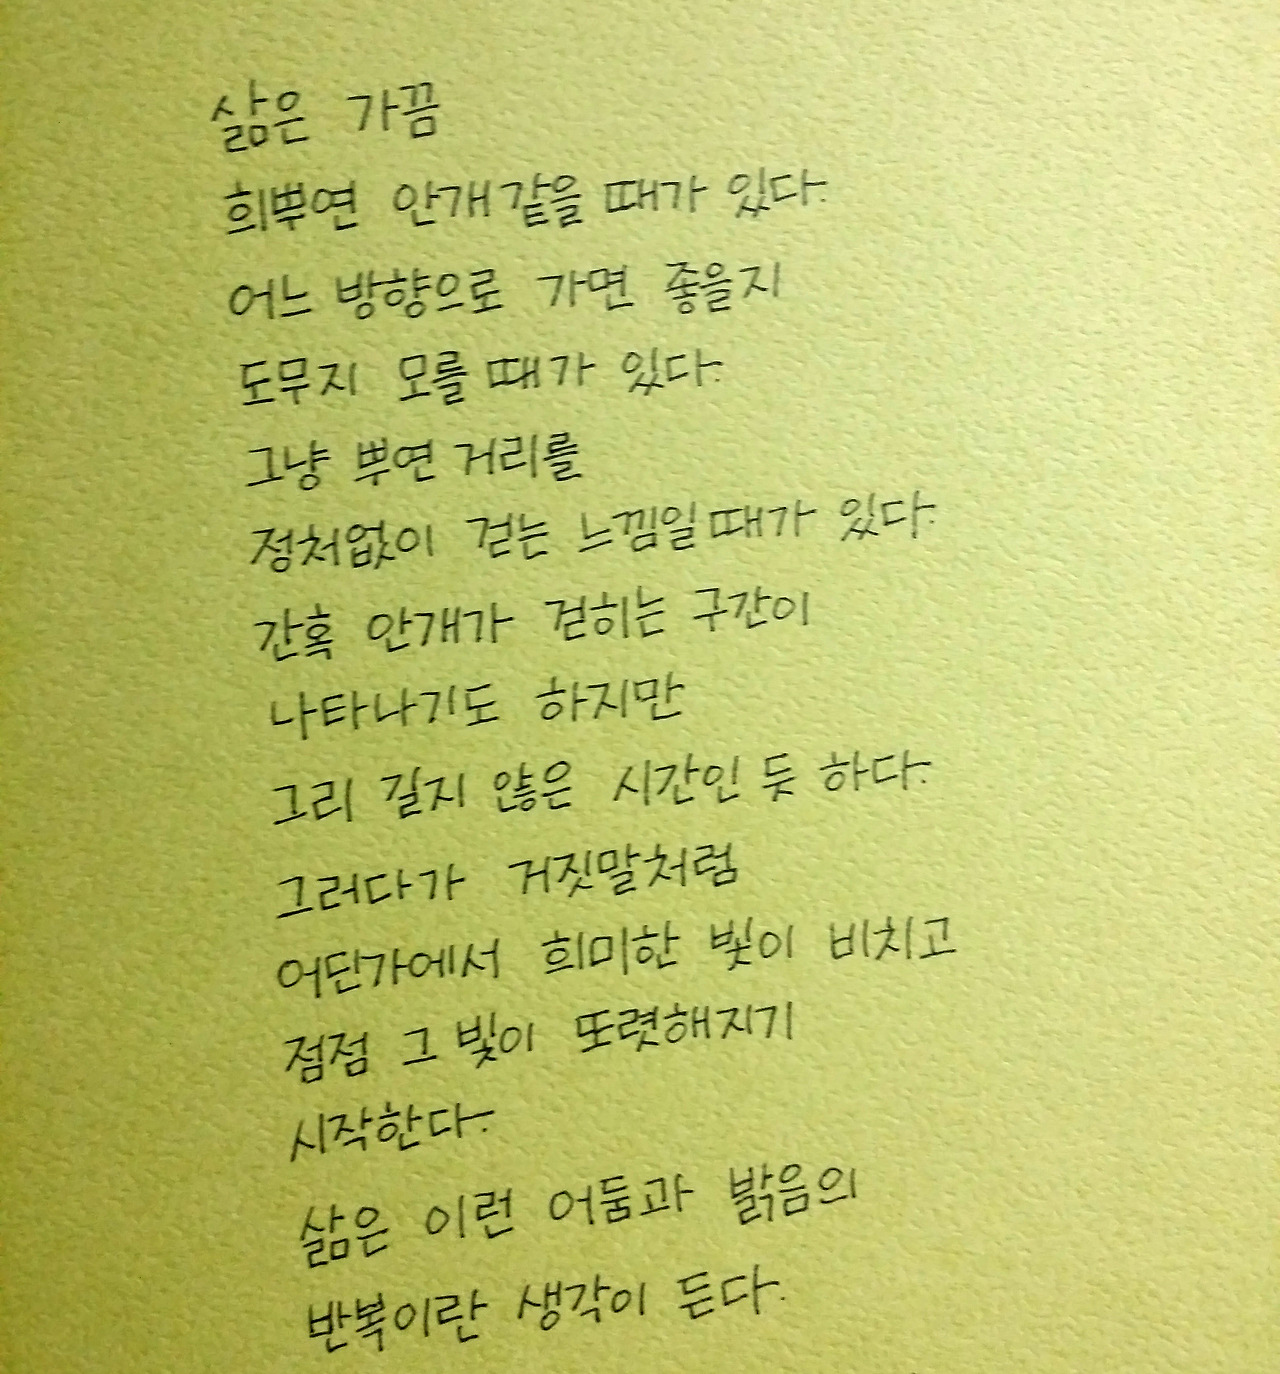 삶은 가끔
희뿌연 안개 같을 때가 있다.
어느 방향으로 가면 좋을지
도무지 모를 때가 있다.
그냥 뿌연 거리를
정처없이 걷는 느낌일 때가 있다.
간혹 안개가 걷히는 구간이
나타나기도 하지만
그리 길지 않은 시간인 듯 하다.
그러다가 거짓말처럼
어딘가에서 희미한 빛이 비치고
점점 그 빛이 또렷해지기
시작한다.
삶은 이런 어둠과 밝음의
반복이란 생각이 든다.